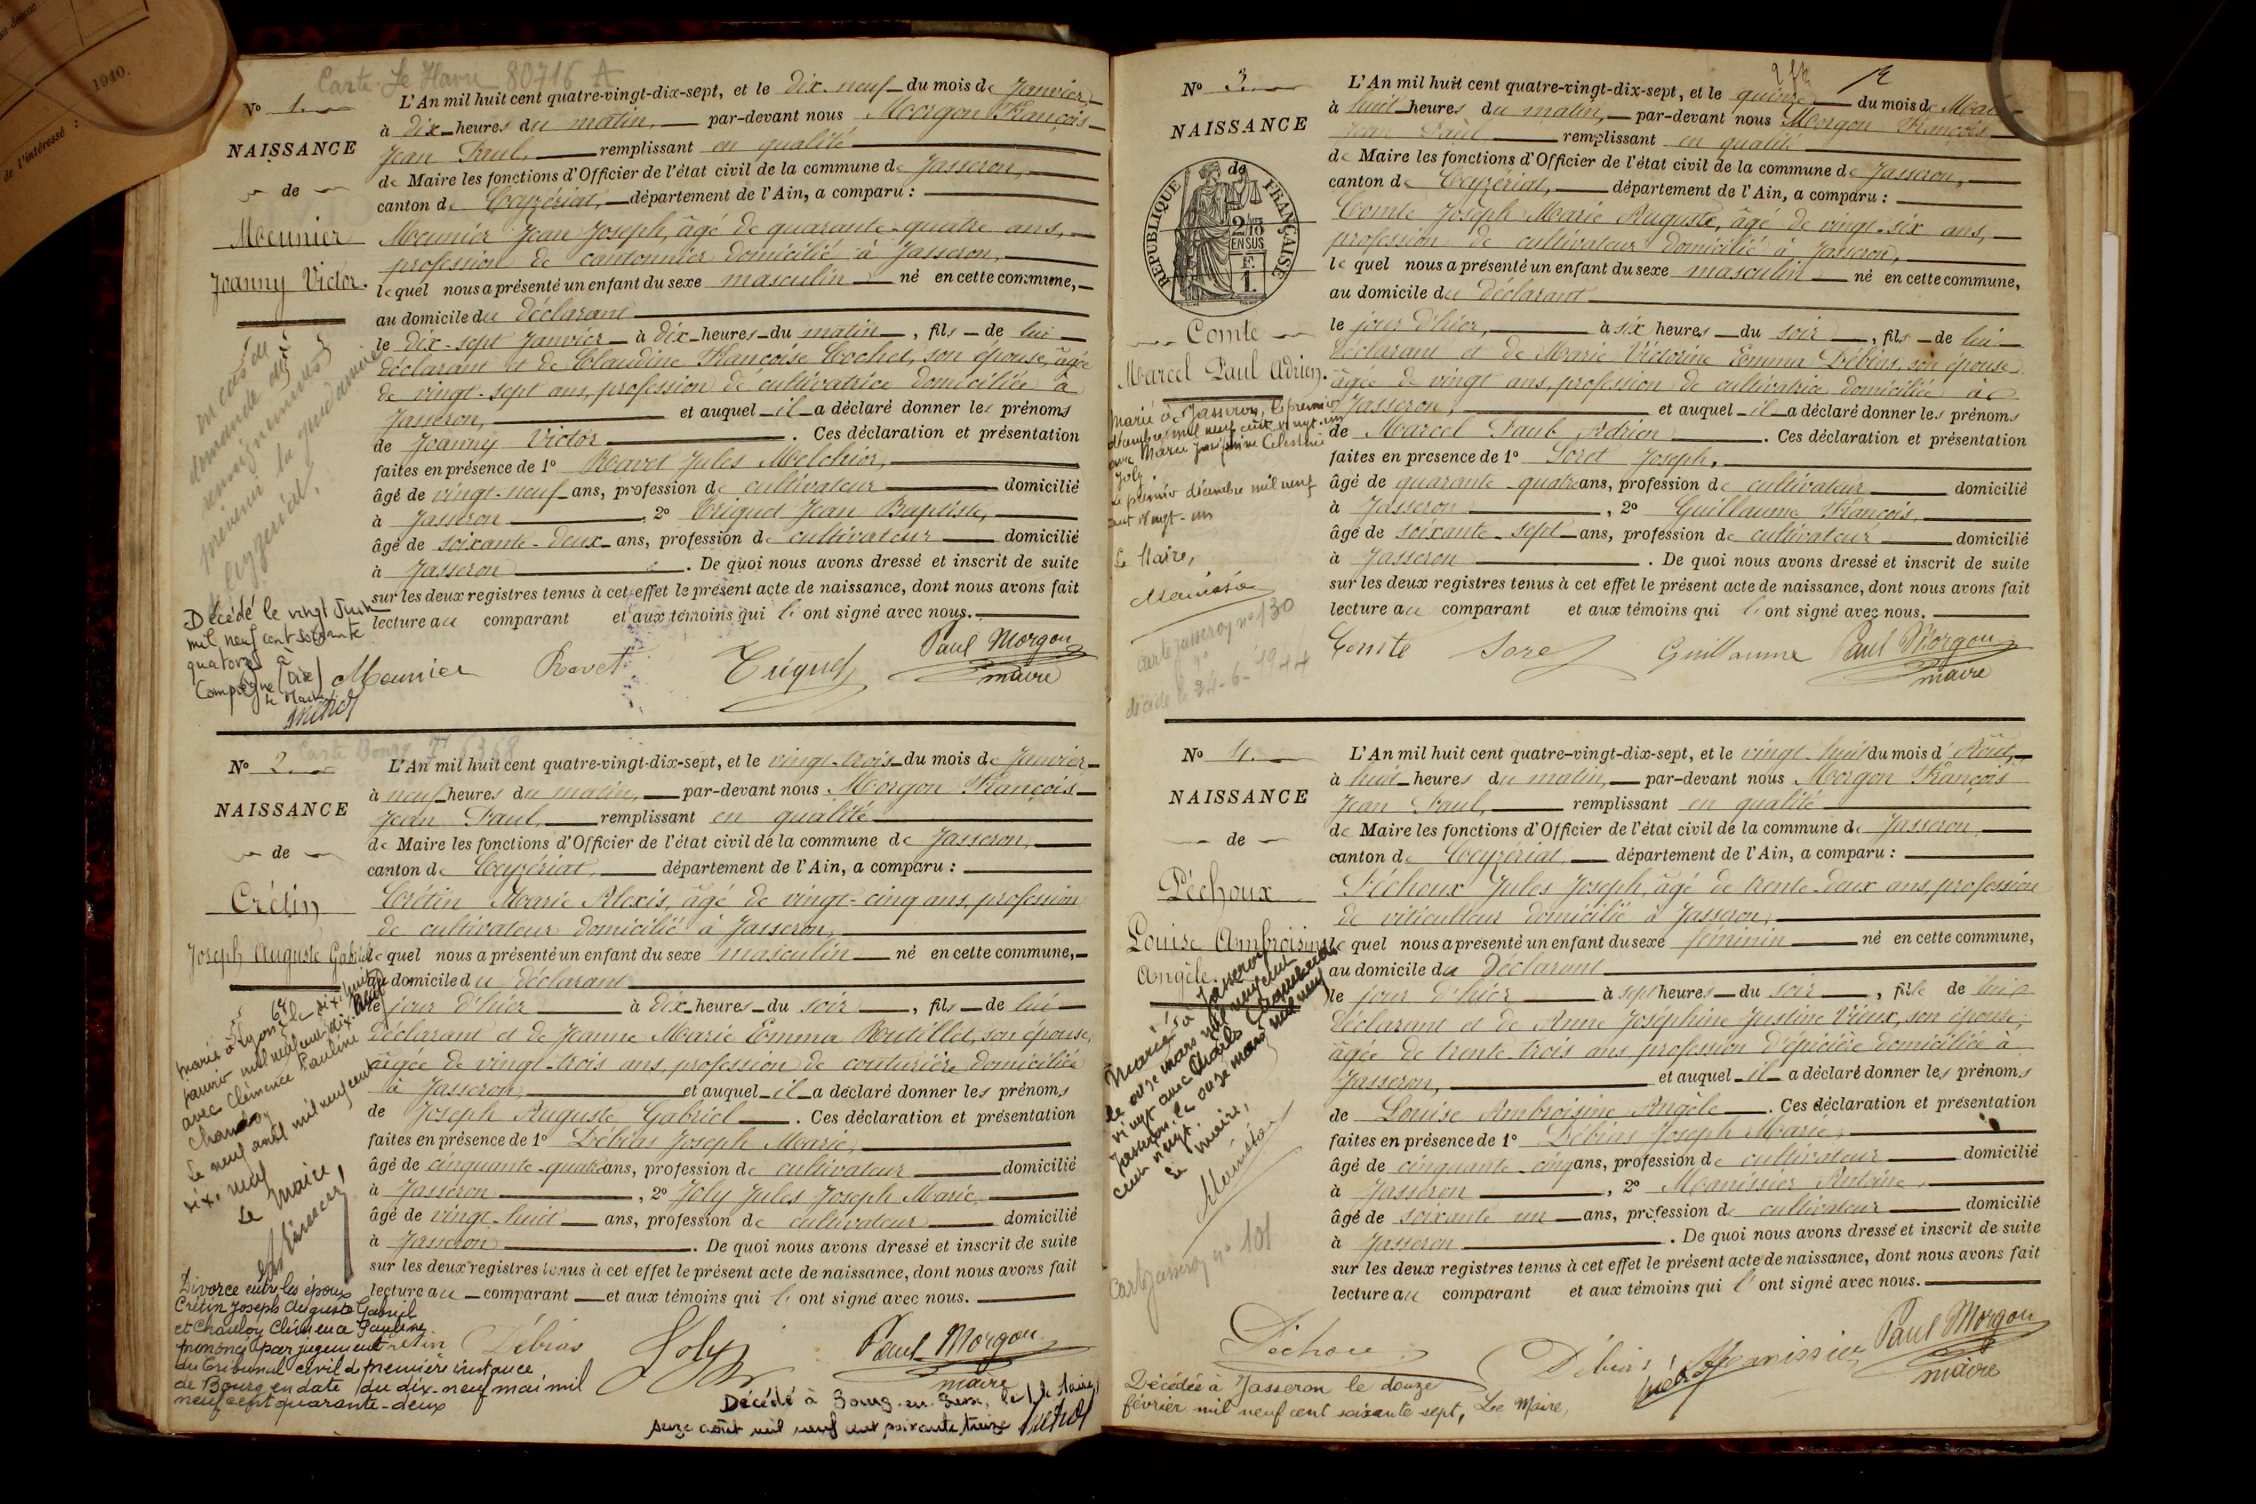 1940.
de l'intéressé :
Carte Le Havre 80716 A
Nº 1.
NAISSANCE
de
Meunier
Joanny Victor.
en cas de
demande de
renseignements
prévenir la
Ceyzériat.
Décédé le vingt Juin
mil neuf cent soixante
quatorze à
Compiègne (Oise)
Le Maire
L'An mil huit cent quatre-vingt-dix-sept, et le dix-neuf du mois de Janvier
à dix heures du matin, par-devant nous Morgon François
Jean Paul, remplissant en qualité
de Maire les fonctions d'Officier de l'état civil de la commune de Jasseron,
canton de Ceyzériat, département de l'Ain, a comparu :
Meunier Jean Joseph, âgé de quarante-quatre ans,
profession de cantonnier domicilié à Jasseron,
lequel nous a présenté un enfant du sexe masculin né en cette commune,
au domicile du déclarant
le dix-sept Janvier à dix heures du matin, fils de lui
déclarant et de Claudine Françoise Cochet, son épouse, âgée
de vingt-sept ans, profession de cultivatrice domiciliée à
Jasseron, et auquel il a déclaré donner les prénoms
de Joanny Victor. Ces déclaration et présentation
faites en présence de 1º Ravet Jules Melchior,
âgé de vingt-neuf ans, profession de cultivateur domicilié
à Jasseron, 2º Triquet Jean Baptiste,
âgé de soixante-deux ans, profession de cultivateur domicilié
à Jasseron. De quoi nous avons dressé et inscrit de suite
sur les deux registres tenus à cet effet le présent acte de naissance, dont nous avons fait
lecture au comparant et aux témoins qui l'ont signé avec nous.
Meunier Ravet Triquet Paul Morgon
maire
Nº 2.
NAISSANCE
de
Crétin
Joseph Auguste Gabriel
marié à Lyon 6e le dix-huit
janvier mil neuf cent dix-neuf
avec Clémence Pauline
Chanloy
Le neuf avril mil neuf cent
dix-neuf
Le Maire,
Divorce entre les époux
Crétin Joseph Auguste Gabriel
et Chanloy Clémence Pauline
prononcé par jugement
du Tribunal civil de première instance
de Bourg en date du dix-neuf mai mil
neuf cent quarante-deux
L'An mil huit cent quatre-vingt-dix-sept, et le vingt-trois du mois de Janvier
à neuf heures du matin, par-devant nous Morgon François
Jean Paul, remplissant en qualité
de Maire les fonctions d'Officier de l'état civil de la commune de Jasseron,
canton de Ceyzériat, département de l'Ain, a comparu :
Crétin Marie Alexis, âgé de vingt-cinq ans, profession
de cultivateur domicilié à Jasseron,
lequel nous a présenté un enfant du sexe masculin né en cette commune,
au domicile du déclarant
le jour d'hier à dix heures du soir, fils de lui
déclarant et de Jeanne Marie Emma Routillet, son épouse,
âgée de vingt-trois ans, profession de couturière domiciliée
à Jasseron, et auquel il a déclaré donner les prénoms
de Joseph Auguste Gabriel. Ces déclaration et présentation
faites en présence de 1º Débias Joseph Marie,
âgé de cinquante-quatre ans, profession de cultivateur domicilié
à Jasseron, 2º Joly Jules Joseph Marie
âgé de vingt-huit ans, profession de cultivateur domicilié
à Jasseron. De quoi nous avons dressé et inscrit de suite
sur les deux registres tenus à cet effet le présent acte de naissance, dont nous avons fait
lecture au comparant et aux témoins qui l'ont signé avec nous.
Crétin Débias Joly Paul Morgon
maire
Décédé à Bourg-en-Bresse, le
seize août mil neuf cent soixante treize
Le Maire
Nº 3.
NAISSANCE
de
RÉPUBLIQUE FRANÇAISE
2/10
EN SUS
F.
1.
Comte
Marcel Paul Adrien.
Marié à Jasseron, le premier
décembre mil neuf cent vingt-un
avec Marie Joséphine Célestine
Joly
Le premier décembre mil neuf
cent vingt-un
Le Maire,
Manissier
carte Jasseron nº 130
décédé le 24-6-1944
L'An mil huit cent quatre-vingt-dix-sept, et le quinze du mois de Mai
à huit heures du matin, par-devant nous Morgon François
Jean Paul remplissant en qualité
de Maire les fonctions d'Officier de l'état civil de la commune de Jasseron,
canton de Ceyzériat, département de l'Ain, a comparu :
Comte Joseph Marie Auguste, âgé de vingt-six ans,
profession de cultivateur domicilié à Jasseron,
lequel nous a présenté un enfant du sexe masculin né en cette commune,
au domicile du déclarant
le jour d'hier, à six heures du soir, fils de lui
déclarant et de Marie Victorine Emma Débias, son épouse
âgée de vingt ans, profession de cultivatrice domiciliée à
Jasseron, et auquel il a déclaré donner les prénoms
de Marcel Paul Adrien. Ces déclaration et présentation
faites en présence de 1º Soret Joseph,
âgé de quarante-quatre ans, profession de cultivateur domicilié
à Jasseron, 2º Guillaume François,
âgé de soixante-sept ans, profession de cultivateur domicilié
à Jasseron. De quoi nous avons dressé et inscrit de suite
sur les deux registres tenus à cet effet le présent acte de naissance, dont nous avons fait
lecture au comparant et aux témoins qui l'ont signé avec nous.
Comte Soret Guillaume Paul Morgon
maire
Nº 4.
NAISSANCE
de
Péchoux
Louise Ambroisine
Angèle.
Mariée à Jasseron
le onze mars mil neuf cent
vingt avec Charles
Jasseron, le onze mars mil neuf
cent vingt.
Le maire,
Manissier
Carte Jasseron nº 101
L'An mil huit cent quatre-vingt-dix-sept, et le vingt-huit du mois d'Août,
à huit heures du matin, par-devant nous Morgon François
Jean Paul, remplissant en qualité
de Maire les fonctions d'Officier de l'état civil de la commune de Jasseron,
canton de Ceyzériat, département de l'Ain, a comparu :
Péchoux Jules Joseph, âgé de trente-deux ans, profession
de viticulteur domicilié à Jasseron,
lequel nous a présenté un enfant du sexe féminin né en cette commune,
au domicile du Déclarant
le jour d'hier à sept heures du soir, fille de lui
déclarant et de Anne Joséphine Justine Vieux, son épouse,
âgée de trente-trois ans profession d'épicière domiciliée à
Jasseron, et auquel il a déclaré donner les prénoms
de Louise Ambroisine Angèle. Ces déclaration et présentation
faites en présence de 1º Débias Joseph Marie,
âgé de cinquante-cinq ans, profession de cultivateur domicilié
à Jasseron, 2º Manissier Antoine,
âgé de soixante un ans, profession de cultivateur domicilié
à Jasseron. De quoi nous avons dressé et inscrit de suite
sur les deux registres tenus à cet effet le présent acte de naissance, dont nous avons fait
lecture au comparant et aux témoins qui l'ont signé avec nous.
Péchoux Débias Manissier Paul Morgon
maire
Décédée à Jasseron le douze
février mil neuf cent soixante sept, Le Maire,